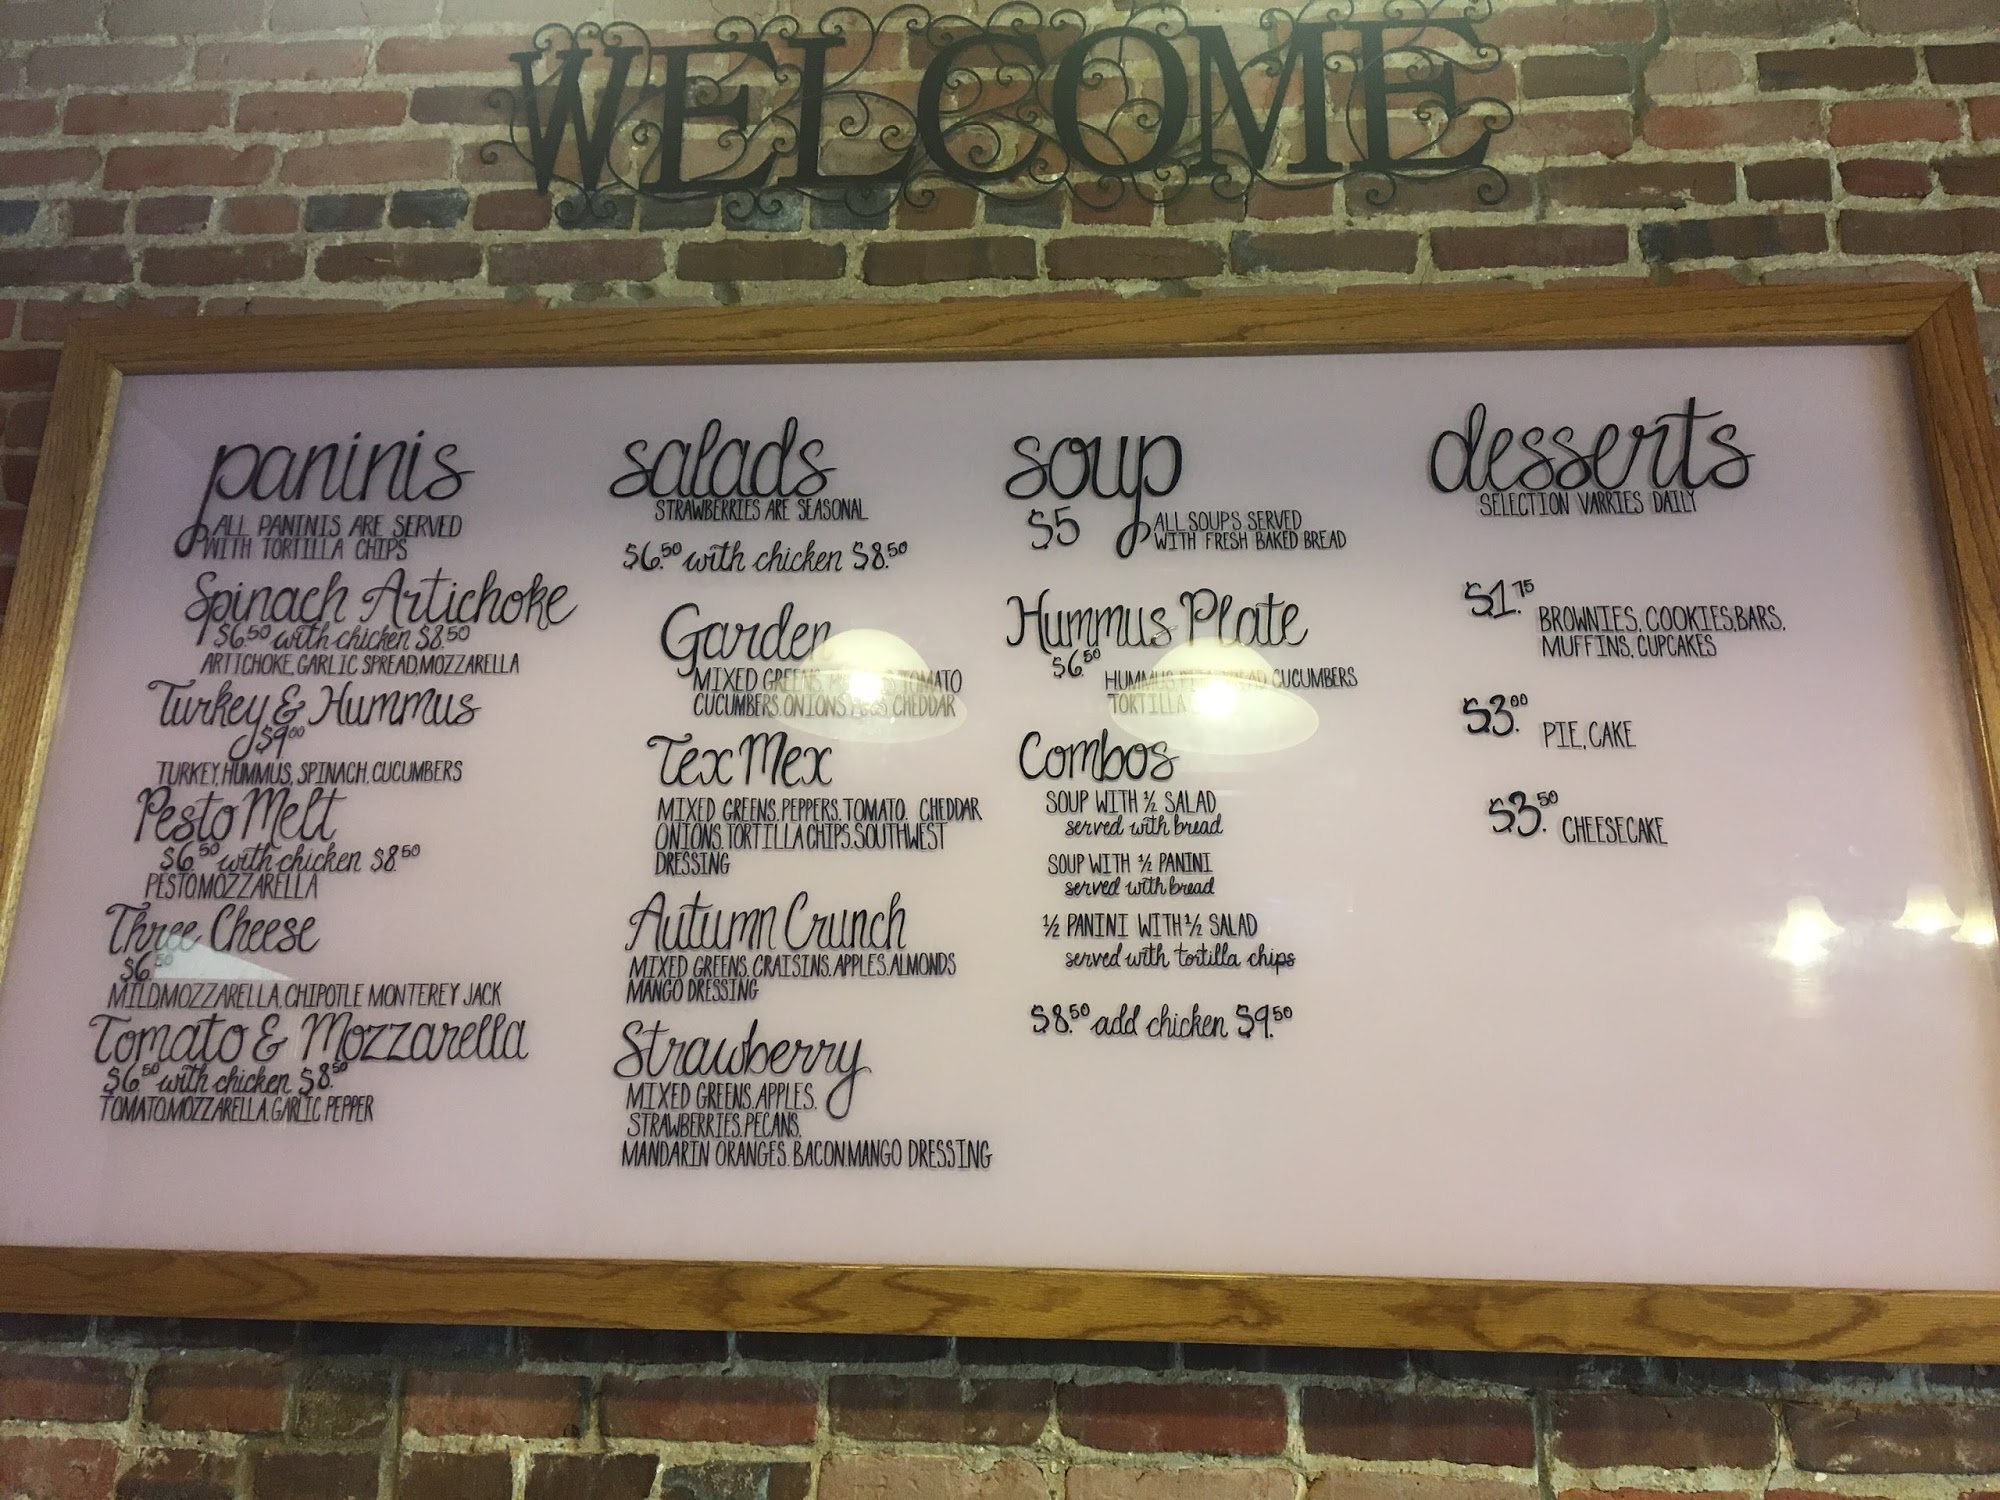 WELCOME
paninis
ALL PANINIS ARE SERVED
WITH TORTILLA CHIPS
Spinach Artichoke
$6.50 with chicken $8.50
ARTICHOKE, GARLIC SPREAD, MOZZARELLA
Turkey & Hummus
$9.00
TURKEY, HUMMUS, SPINACH, CUCUMBERS
Pesto Melt
$6.50 with chicken $8.50
PESTO, MOZZARELLA
Three Cheese
$6.50
MILD, MOZZARELLA, CHIPOTLE MONTEREY JACK
Tomato & Mozzarella
$6.50 with chicken $8.50
TOMATO, MOZZARELLA, GARLIC PEPPER
salads
STRAWBERRIES ARE SEASONAL
$6.50 with chicken $8.50
Garden
MIXED GREENS, TOMATO
CUCUMBERS, ONIONS, CHEDDAR
Tex Mex
MIXED GREENS, PEPPERS, TOMATO, CHEDDAR
ONIONS, TORTILLA CHIPS, SOUTHWEST
DRESSING
Autumn Crunch
MIXED GREENS, CRAISINS, APPLES, ALMONDS
MANGO DRESSING
Strawberry
MIXED GREENS, APPLES,
STRAWBERRIES, PECANS,
MANDARIN ORANGES, BACON, MANGO DRESSING
soup
$5 ALL SOUPS SERVED
WITH FRESH BAKED BREAD
Hummus Plate
$6.50 HUMMUS CUCUMBERS
TORTILLA
Combos
SOUP WITH ½ SALAD
served with bread
SOUP WITH ½ PANINI
served with bread
½ PANINI WITH ½ SALAD
served with tortilla chips
$8.50 add chicken $9.50
desserts
SELECTION VARRIES DAILY
$1.75 BROWNIES, COOKIES, BARS,
MUFFINS, CUPCAKES
$3.00 PIE, CAKE
$3.50 CHEESECAKE